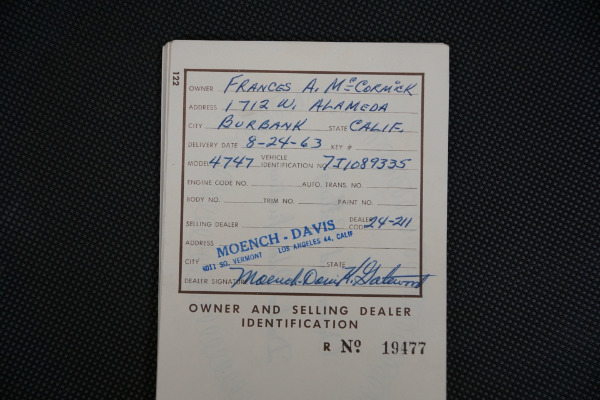 122
OWNER FRANCES A. McCORMICK
ADDRESS 1712 W. ALAMEDA
CITY BURBANK STATE CALIF.
DELIVERY DATE 8-24-63 KEY #
MODEL 4747 VEHICLE IDENTIFICATION NO. 7J1089335
ENGINE CODE NO. AUTO. TRANS. NO.
BODY NO. TRIM NO. PAINT NO.
SELLING DEALER DEALER CODE 24-211
ADDRESS
MOENCH-DAVIS
4011 SO. VERMONT LOS ANGELES 44, CALIF
CITY STATE
DEALER SIGNATURE Moench-Davis K.
OWNER AND SELLING DEALER
IDENTIFICATION
R No 19477